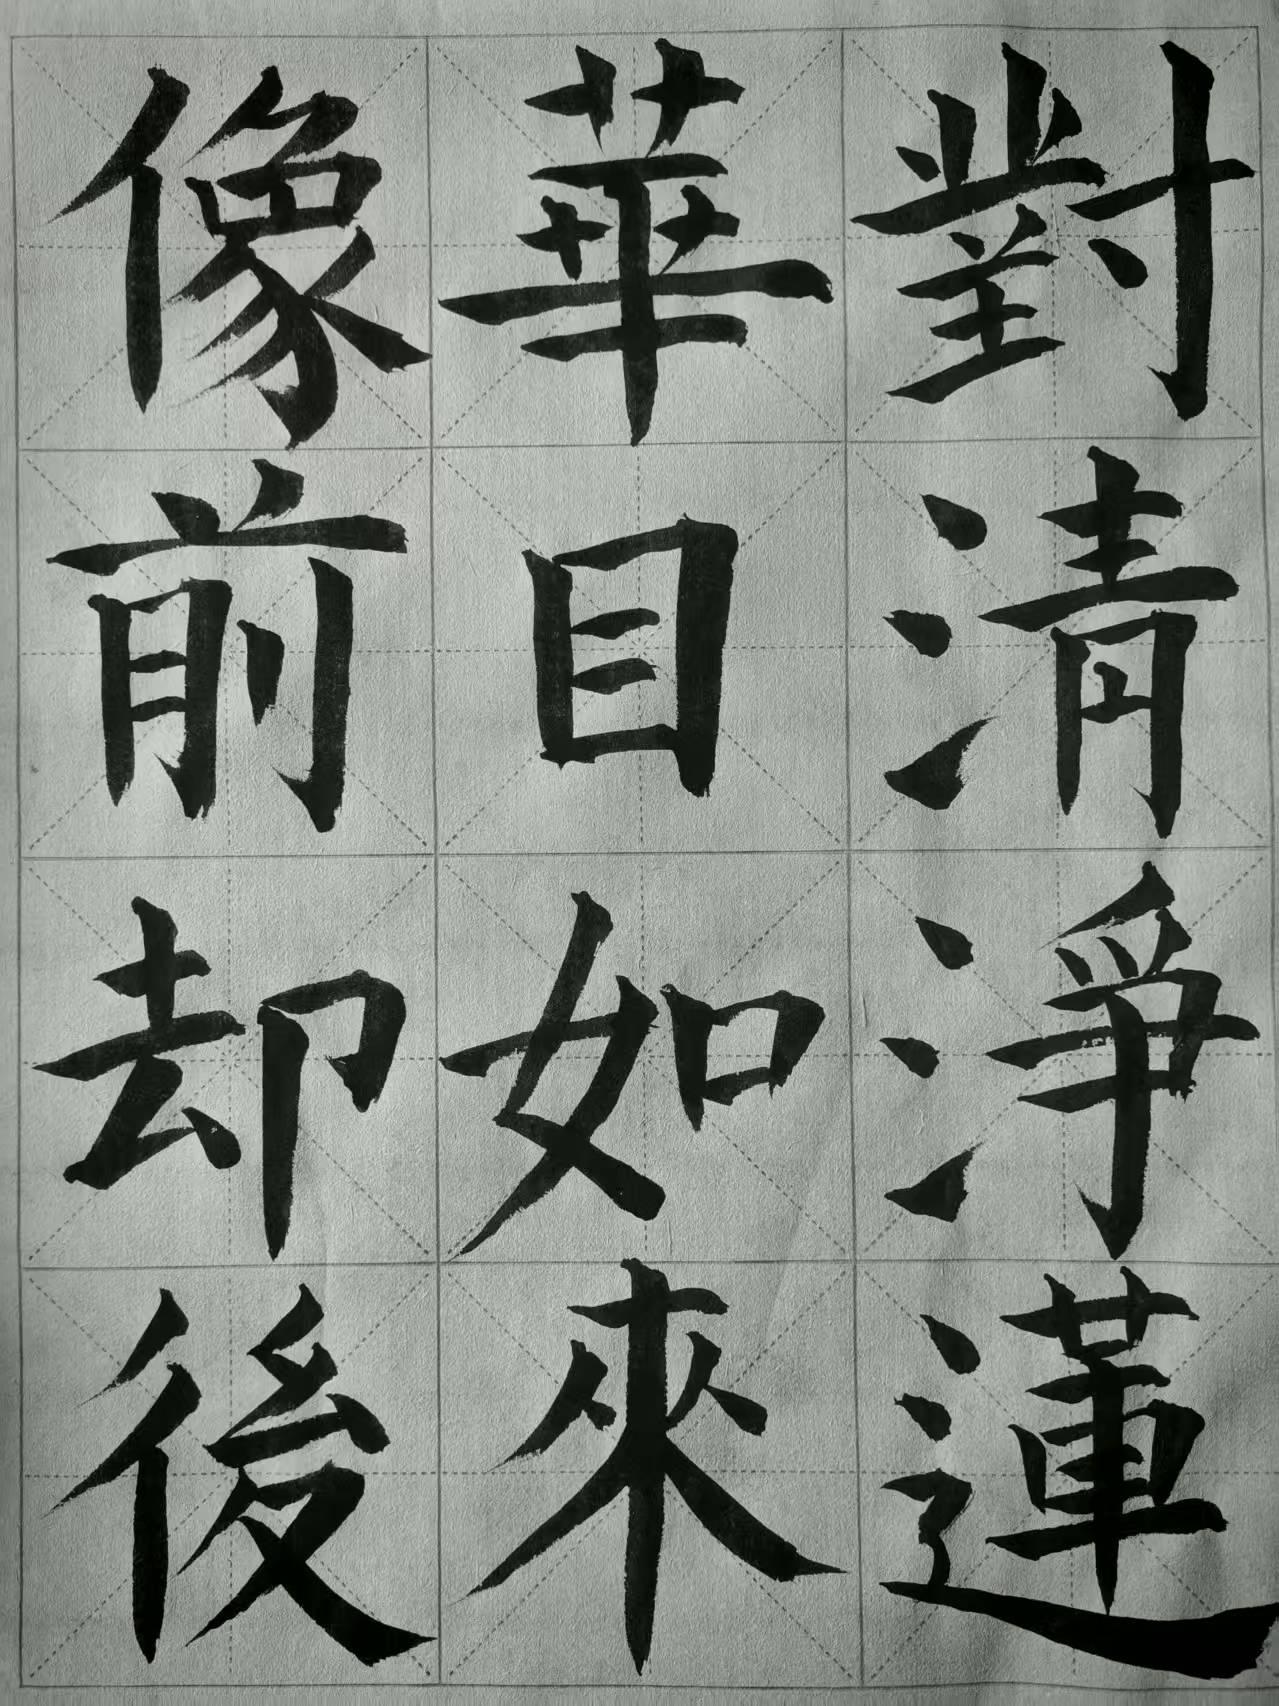 對清淨蓮
華目如來
像前却後